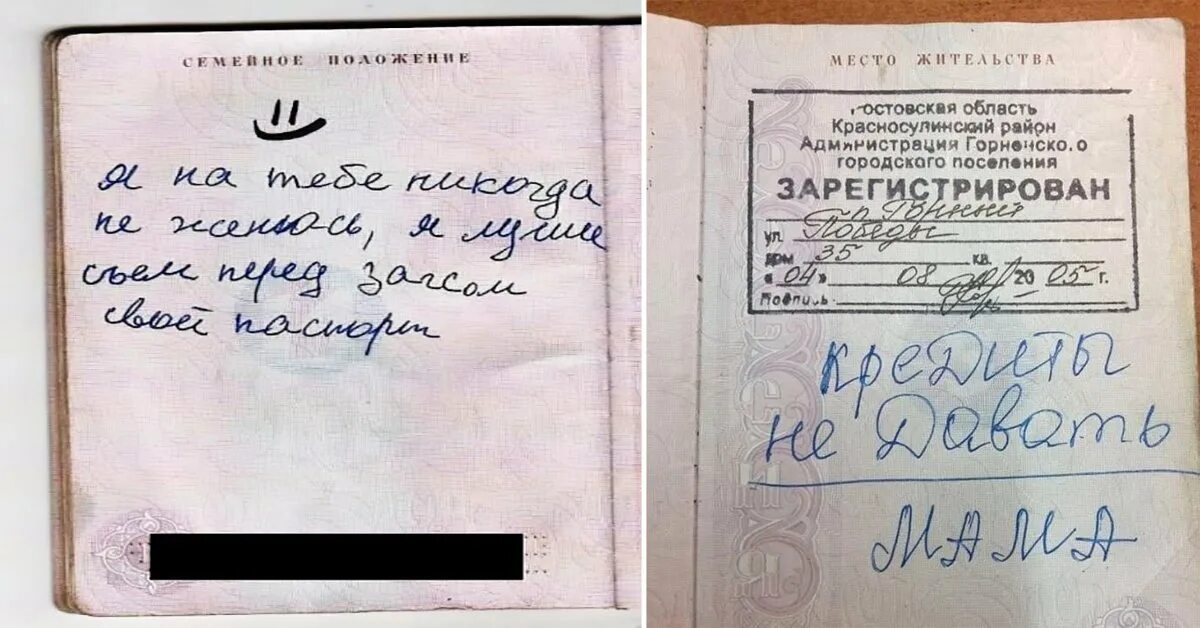 СЕМЕЙНОЕ ПОЛОЖЕНИЕ
я на тебе никогда
не женюсь, я лучше
съем перед загсом
свой паспорт
МЕСТО ЖИТЕЛЬСТВА
Ростовская область
Красносулинский район
Администрация Горненского
городского поселения
ЗАРЕГИСТРИРОВАН
п. Горный
ул. Победы
дом 35 кв.
« 04 » 08 20 05 г.
Подпись
кредиты
не давать
МАМА